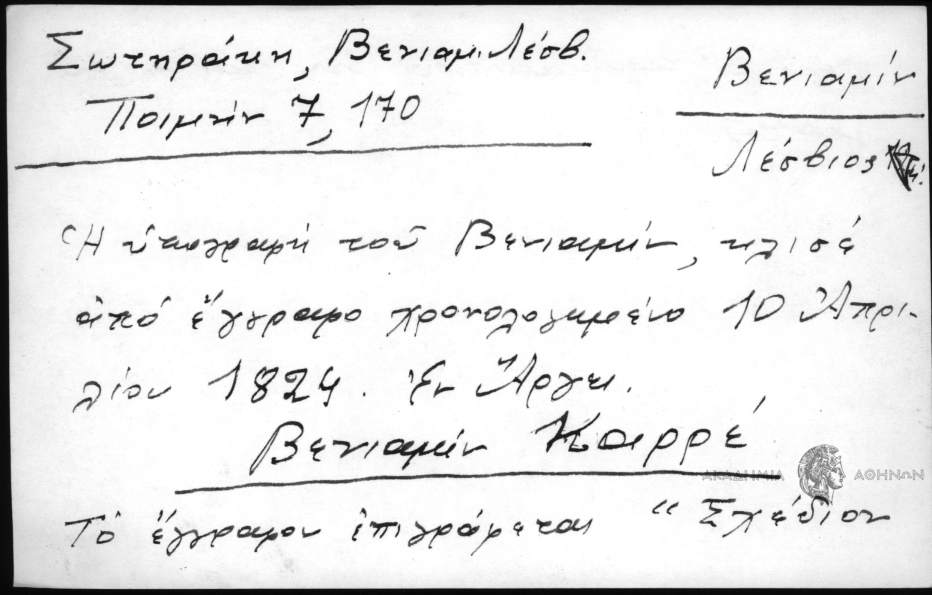 Σωτηράκη, Βενιαμ. Λέσβ.
Ποιμήν 7, 170
Βενιαμίν
Λέσβιος
Ἡ ὑπογραφή τοῦ Βενιαμίν, κλισέ
ἀπό ἔγγραφο χρονολογημένο 10 Ἀπρι-
λίου 1824. Ἐν Ἄργει.
Βενιαμίν Καρρέ
ΑΚΑΔΗΜΙΑ ΑΘΗΝΩΝ
Τὸ ἔγγραφον ἐπιγράφεται "Σχέδιον